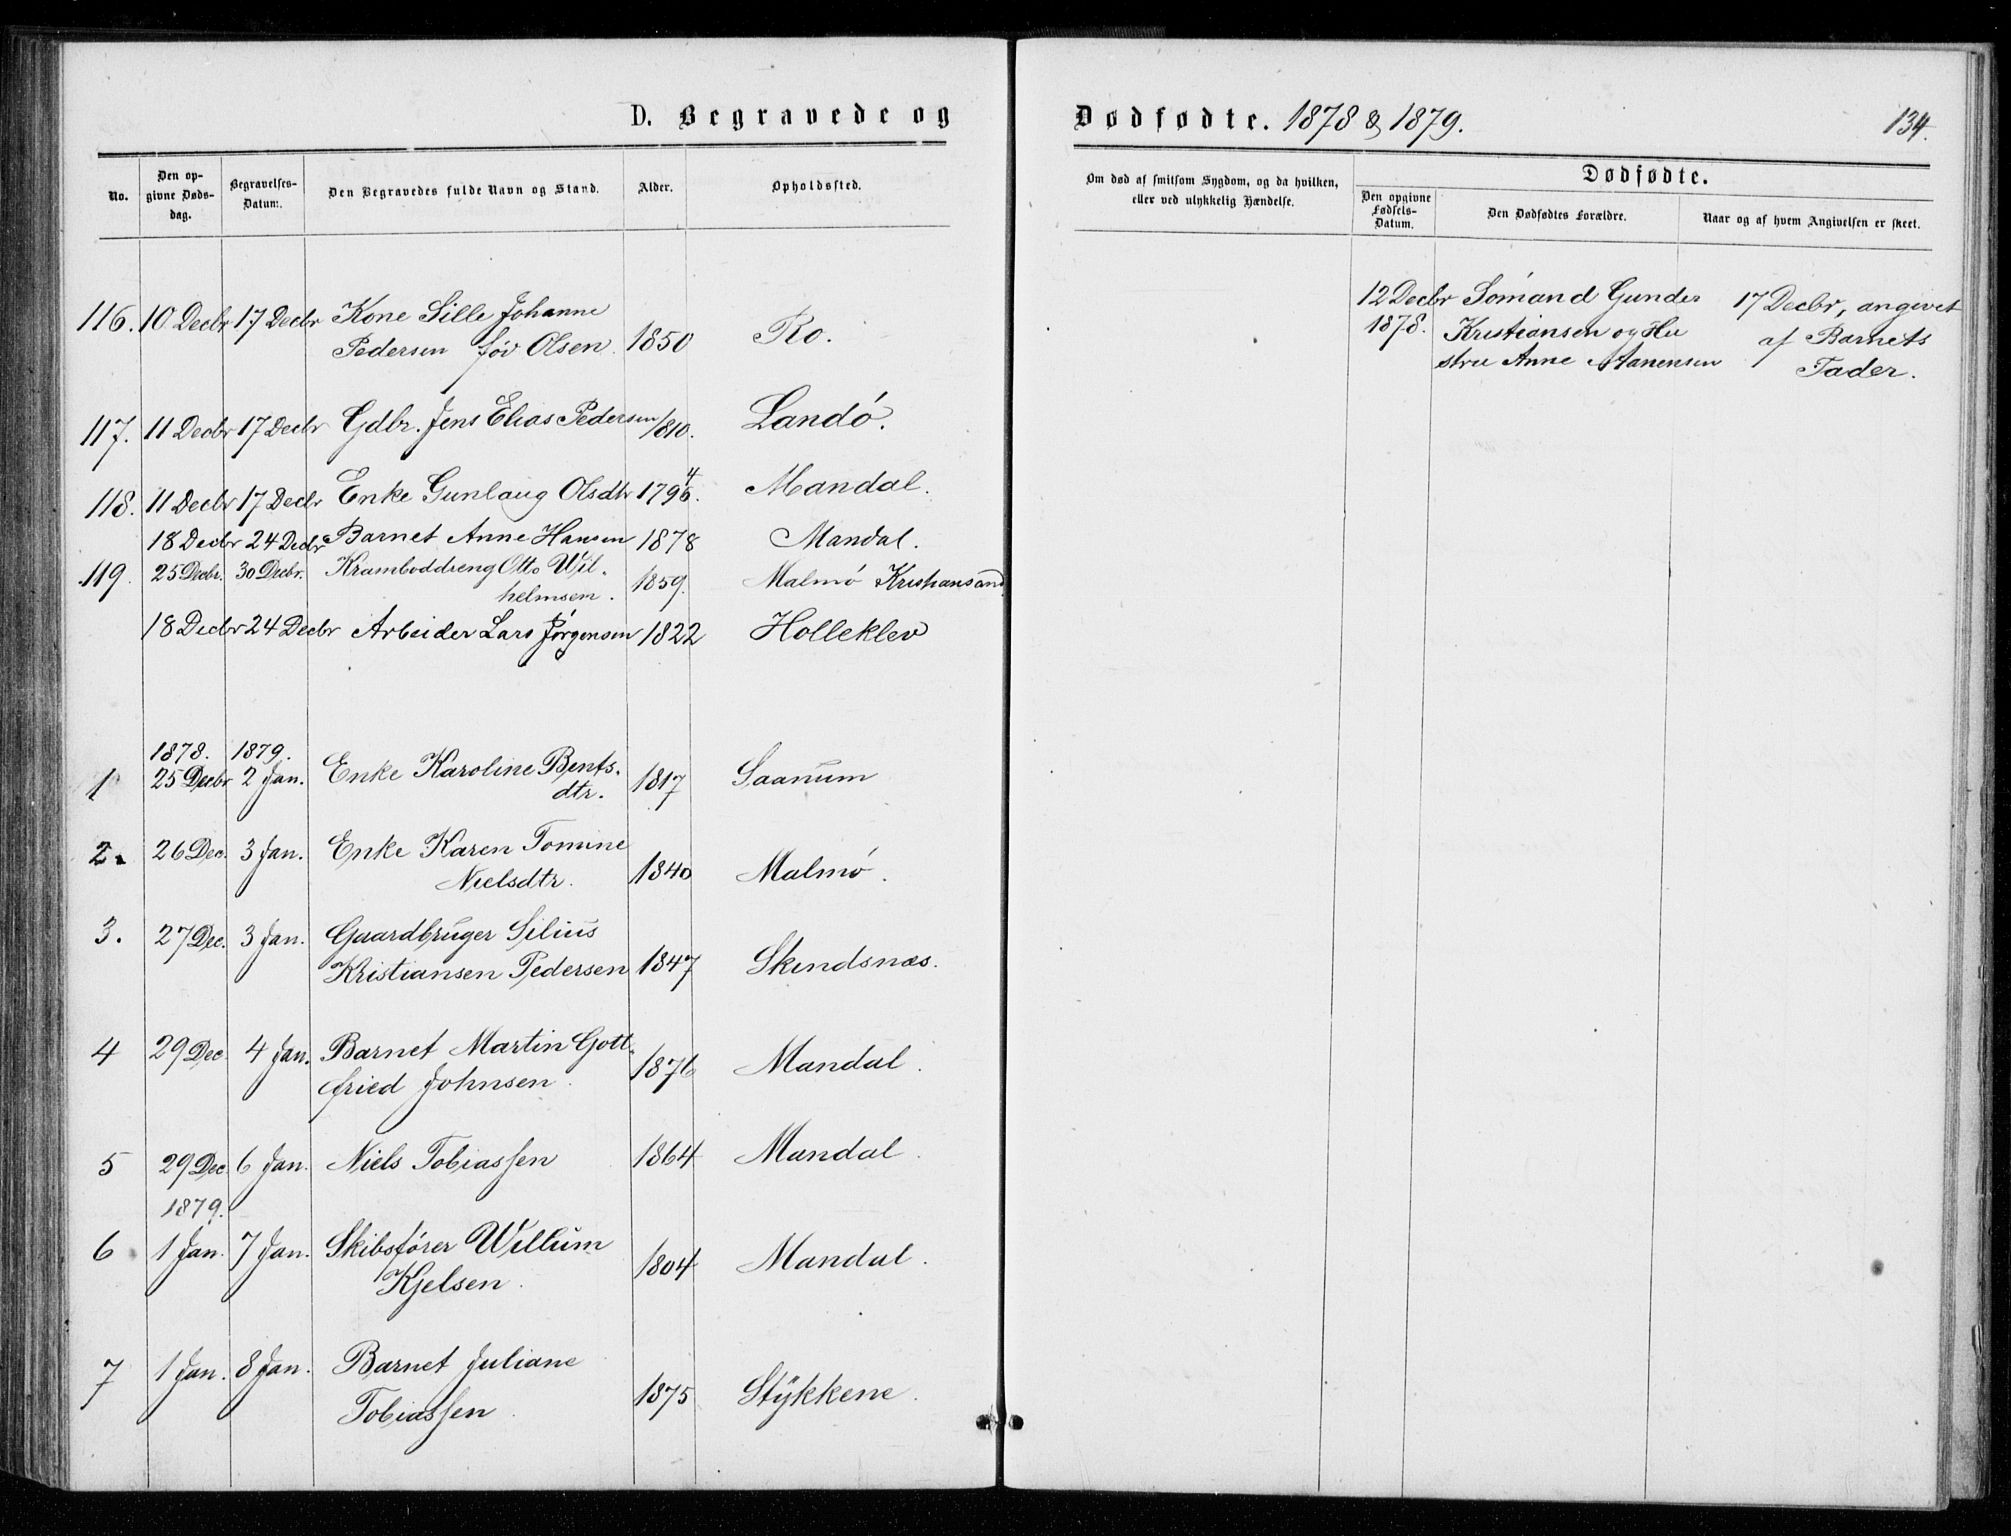 D. Begravede og
No.
Den op-
givne Døds-
dag.
Begravelses-
Datum.
Den Begravedes fulde Navn og Stand.
Alder.
Opholdssted.
116. 10 Decbr 17 Decbr Kone Sille Johanne
Pedersen føv Olsen. 1850 Ro.
117. 11 Decbr 17 Decbr Gdbr. Jens Elias Pedersen 1810. Landø.
4
118. 11 Decbr 17 Decbr Enke Gunlaug Olsdtr 1796. Mandal.
18 Decbr 24 Decbr Barnet Anne Hansen 1878 Mandal.
119. 25 Decbr. 30 Decbr. Kramboddreng Otto Wil-
helmsen. 1859. Malmø Kristiansand
18 Decbr 24 Decbr Arbeider Lars Jørgensen 1822 Holleklev
1878. 1879.
1 25 Decbr 2 Jan. Enke Karoline Bents-
dtr. 1817 Saanum
2. 26 Dec. 3 Jan. Enke Karen Tomine
Nielsdtr. 1840 Malmø.
3. 27 Dec. 3 Jan. Gaardbruger Silius
Kristiansen Pedersen 1847 Skindsnæs.
4 29 Dec. 4 Jan. Barnet Martin Gott-
fried Johnsen. 1876 Mandal.
5 29 Dec. 6 Jan. Niels Tobiassen 1864 Mandal.
1879.
6 1 Jan. 7 Jan. Skibsfører Willum
Kjelsen. 1804 Mandal.
7 1 Jan. 8 Jan. Barnet Juliane
Tobiassen. 1875 Stykkene.
Dødfødte. 1878 & 1879.
134.
Om død af smitsom Sygdom, og da hvilken,
eller ved ulykkelig Hændelse.
Dødfødte.
Den opgivne
Fødsels-
Datum.
Den Dødfødtes Forældre.
Naar og af hvem Angivelsen er skeet.
12 Decbr Sömand Gunder 17 Decbr, angivet
1878. Kristiansen og Hu af Barnets
stru Anne Aanensen Fader.